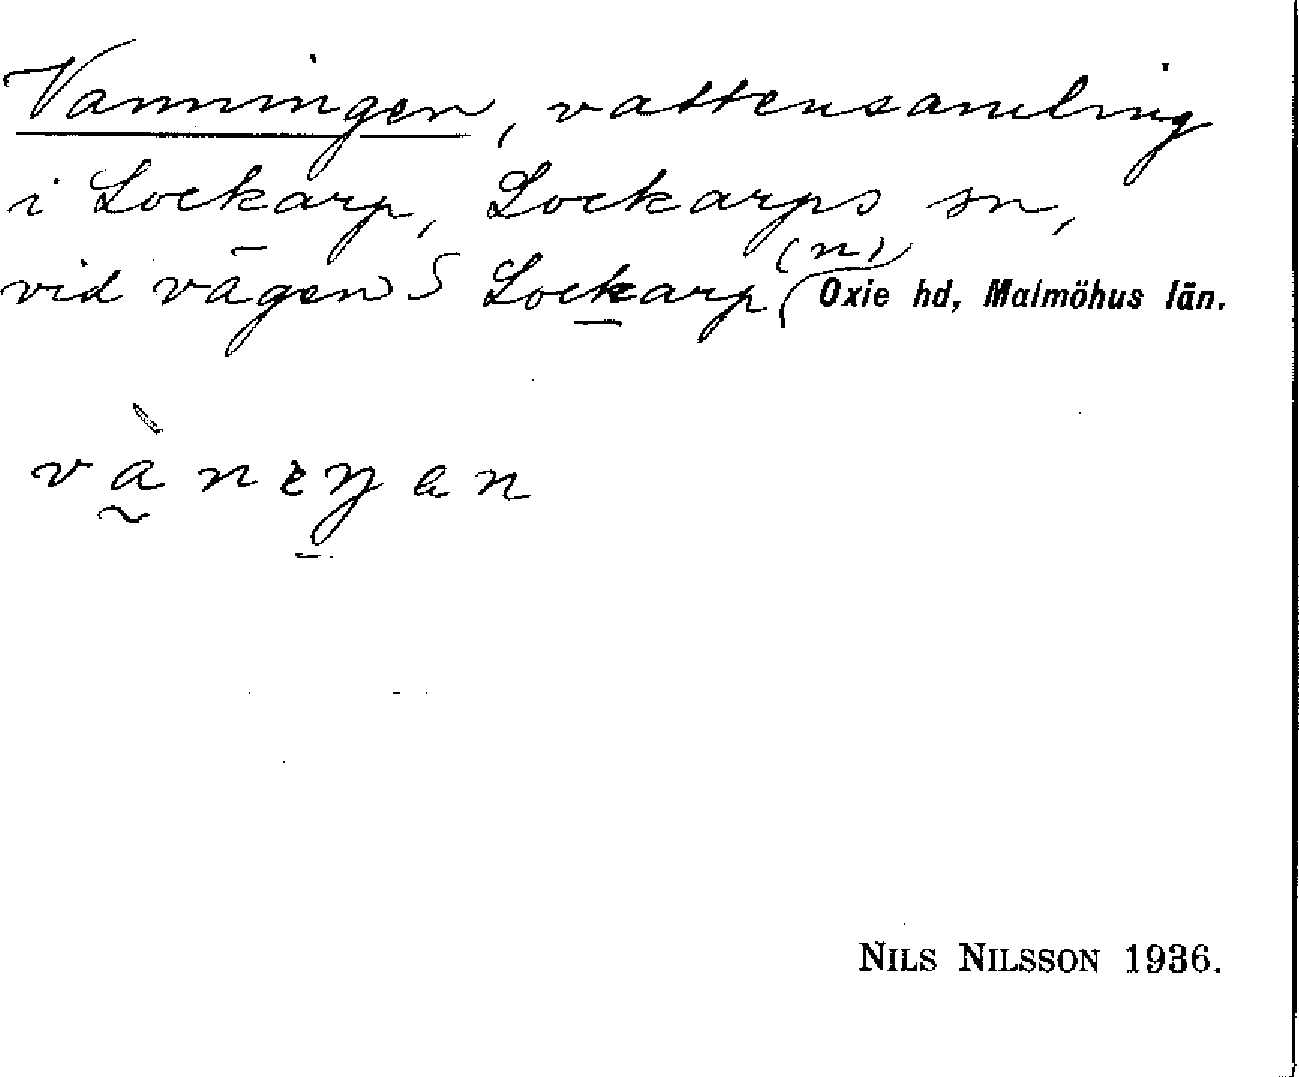 Vanningen, vattensamling
i Lockarp, Lockarps sn,
(n)
vid vägen S Lockarp, Oxie hd, Malmöhus län.
và̰nɛŋen
NILS NILSSON 1936.